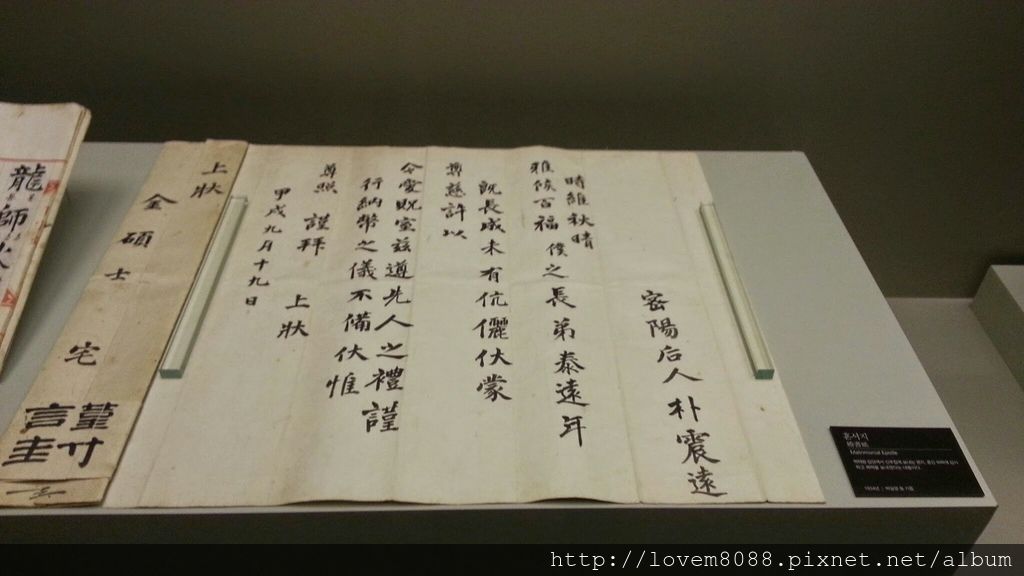 密陽后人朴震遠
時維秋晴
雅候百福僕之長弟泰遠年
旣長成未有伉儷伏蒙
尊慈許以
令愛貺室玆遵先人之禮謹
行納幣之儀不備伏惟
尊照 謹拜 上狀
甲戌九月十九日
上狀
金碩士 宅
龍師火
혼서지
婚書紙
http://lovem8088.pixnet.net/album